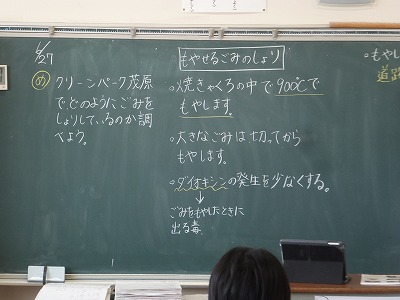 5/27
め クリーンパーク茂原
で、どのようにごみを
しょりしているのか調
べよう。
もやせるごみのしょり
○焼きゃくろの中で900℃で
もやします。
○大きなごみは切ってから
もやします。
○ダイオキシンの発生を少なくする。
↓
ごみをもやしたときに
出る毒
○もやし
道路